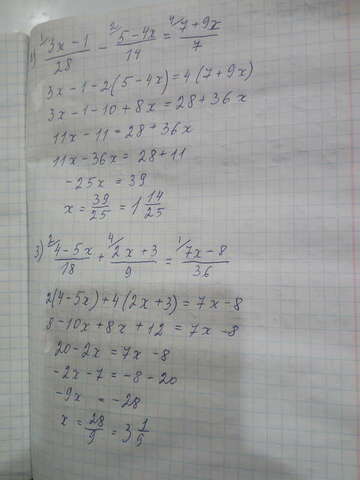 1) 1/ (3x - 1)/28 - 2/ (5 - 4x)/14 = 4/ (7 + 9x)/7
3x - 1 - 2(5 - 4x) = 4(7 + 9x)
3x - 1 - 10 + 8x = 28 + 36x
11x - 11 = 28 + 36x
11x - 36x = 28 + 11
-25x = 39
x = 39/25 = 1 14/25
3) 2/ (4 - 5x)/18 + 4/ (2x + 3)/9 = 1/ (7x - 8)/36
2(4 - 5x) + 4(2x + 3) = 7x - 8
8 - 10x + 8x + 12 = 7x - 8
20 - 2x = 7x - 8
-2x - 7 = -8 - 20
-9x = -28
x = 28/9 = 3 1/9